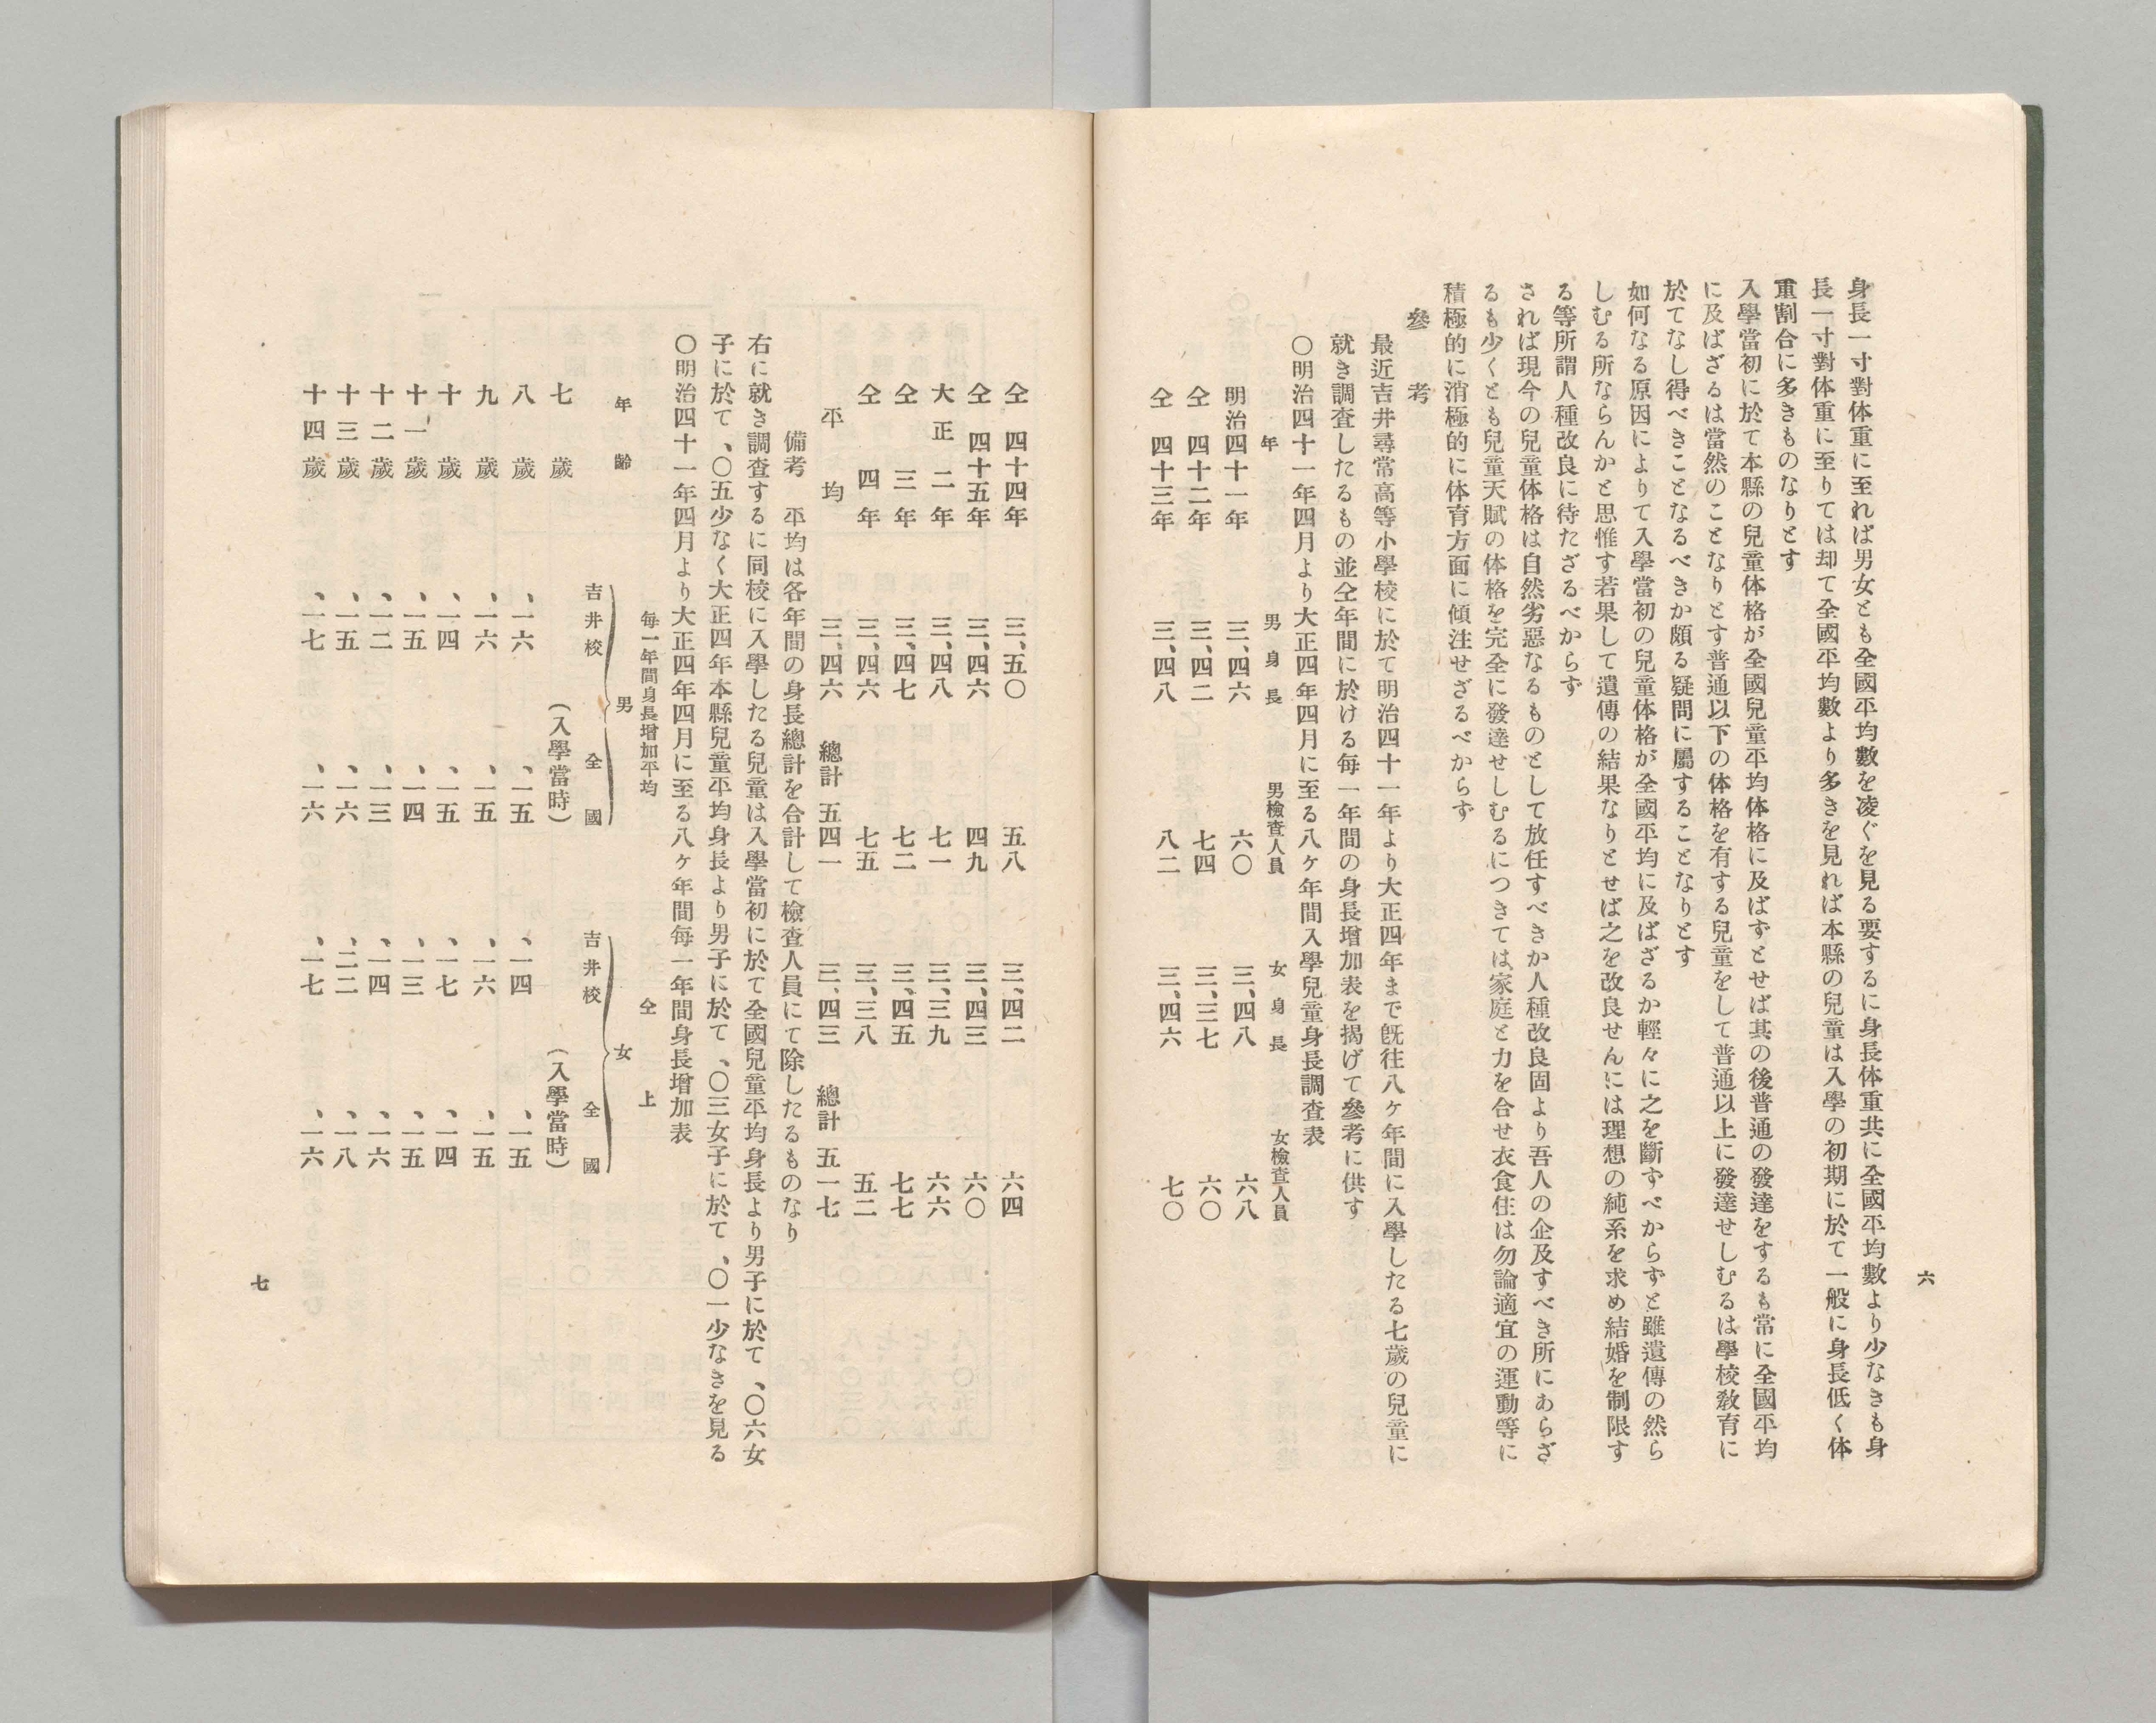 六
身長一寸對体重に至れば男女とも全國平均數を凌ぐを見る要するに身長体重共に全國平均數より少なきも身
長一寸對体重に至りては却て全國平均數より多きを見れば本縣の兒童は入學の初期に於て一般に身長低く体
重割合に多きものなりとす
入學當初に於て本縣の兒童体格が全國兒童平均体格に及ばずとせば其の後普通の發達をするも常に全國平均
に及ばざるは當然のことなりとす普通以下の体格を有する兒童をして普通以上に發達せしむるは學校敎育に
於てなし得べきことなるべきか頗る疑問に屬することなりとす
如何なる原因によりて入學當初の兒童体格が全國平均に及ばざるか輕々に之を斷ずべからずと雖遺傳の然ら
しむる所ならんかと思惟す若果して遺傳の結果なりとせば之を改良せんには理想の純系を求め結婚を制限す
る等所謂人種改良に待たざるべからず
されば現今の兒童体格は自然劣惡なるものとして放任すべきか人種改良固より吾人の企及すべき所にあらざ
るも少くとも兒童天賦の体格を完全に發達せしむるにつきては家庭と力を合せ衣食住は勿論適宜の運動等に
積極的に消極的に体育方面に傾注せざるべからず
參考
最近吉井尋常高等小學校に於て明治四十一年より大正四年まで旣往八ヶ年間に入學したる七歲の兒童に
就き調査したるもの並仝年間に於ける每一年間の身長增加表を揭げて參考に供す
〇明治四十一年四月より大正四年四月に至る八ヶ年間入學兒童身長調査表
年 男身長 男檢査人員 女身長 女檢査人員
明治四十一年 三、四六 六〇 三、四八 六八
仝 四十二年 三、四二 七四 三、三七 六〇
仝 四十三年 三、四八 八二 三、四六 七〇
仝 四十四年 三、五〇 五八 三、四二 六四
仝 四十五年 三、四六 四九 三、四三 六〇
大正 二年 三、四八 七一 三、三九 六六
仝 三年 三、四七 七二 三、四五 七七
仝 四年 三、四六 七五 三、三八 五二
平均 三、四六 總計 五四一 三、四三 總計 五一七
備考 平均は各年間の身長總計を合計して檢査人員にて除したるものなり
右に就き調査するに同校に入學したる兒童は入學當初に於て全國兒童平均身長より男子に於て、〇六女
子に於て、〇五少なく大正四年本縣兒童平均身長より男子に於て、〇三女子に於て、〇一少なきを見る
〇明治四十一年四月より大正四年四月に至る八ヶ年間每一年間身長增加表
每一年間身長增加平均 仝上
年齡 男 女
吉井校 全國 吉井校 全國
七歲 (入學當時) (入學當時)
八歲 、一六 、一五 、一四 、一五
九歲 、一六 、一五 、一六 、一五
十歲 、一四 、一五 、一七 、一四
十一歲 、一五 、一四 、一三 、一五
十二歲 、一二 、一三 、一四 、一六
十三歲 、一五 、一六 、二二 、一八
十四歲 、一七 、一六 、一七 、一六
七